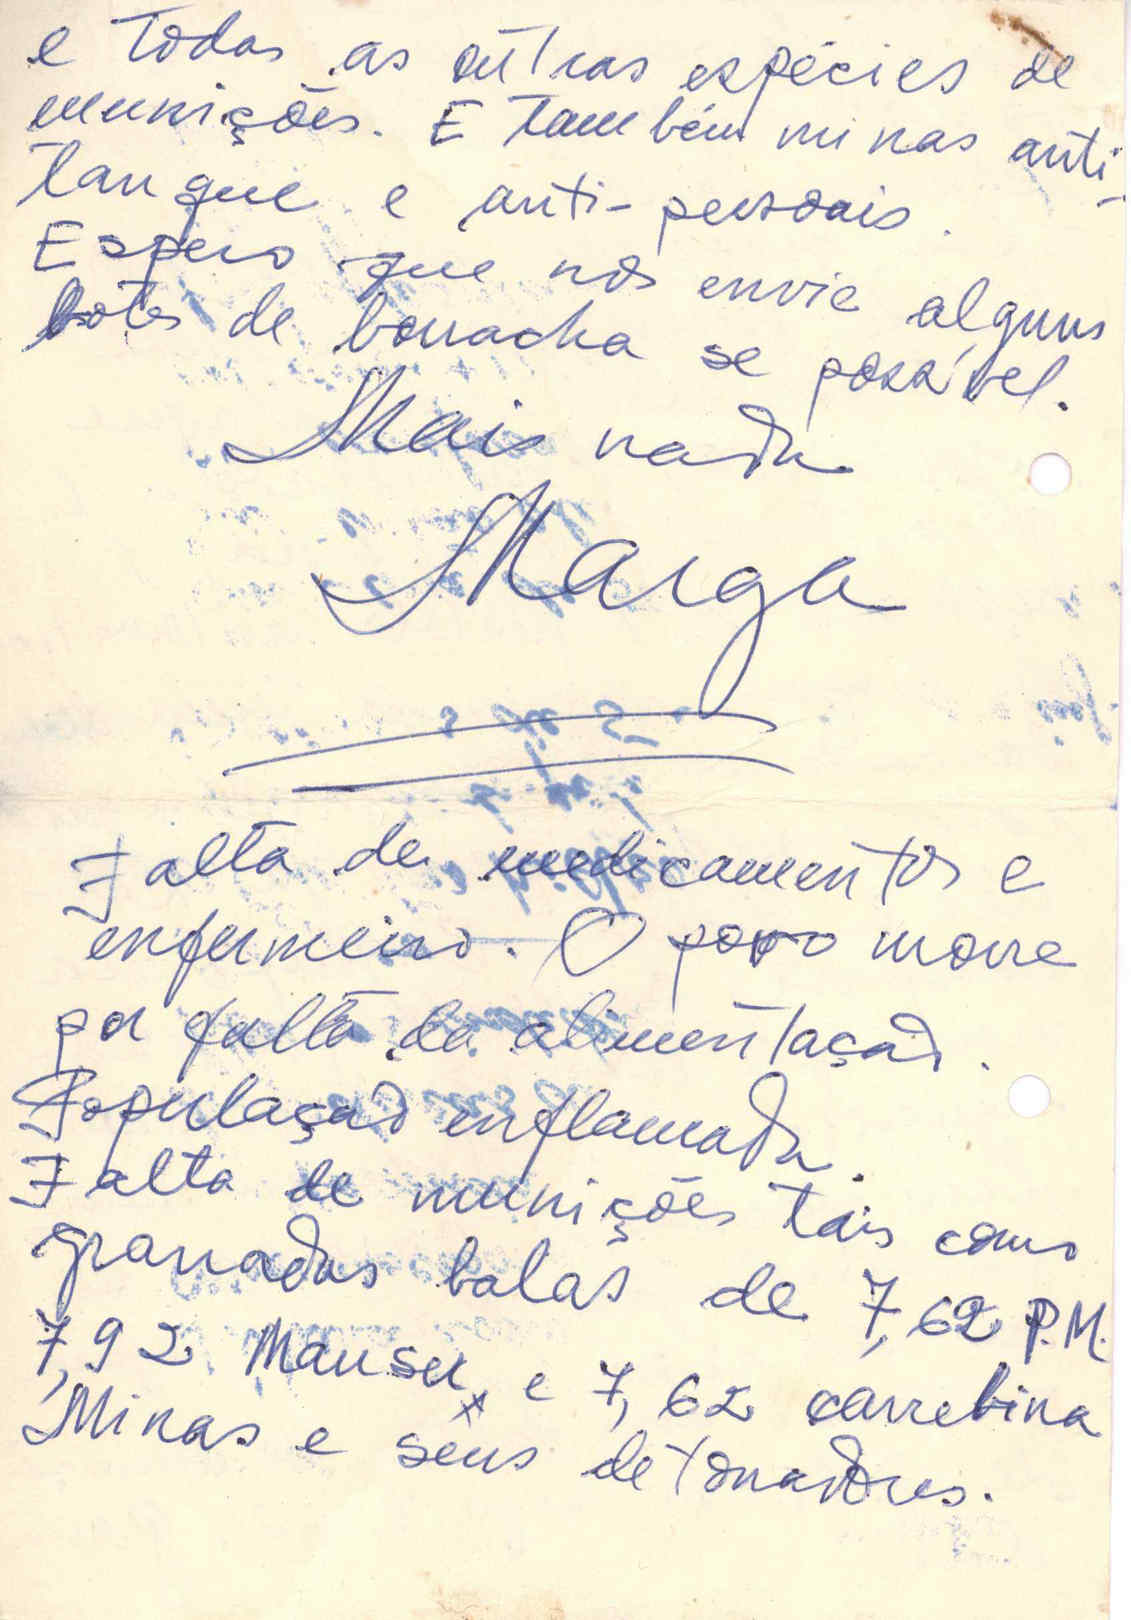 e todas as outras espécies de
munições. E também minas anti-
tanque e anti-pessoais.
Espero que nos envie alguns
botes de borracha se possível.
Mais nada
Marga
Falta de medicamentos e
enfermeiro. O povo morre
por falta da alimentação.
População inflamada.
Falta de munições tais como
granadas balas de 7,62 P.M.
7,92 Mauser e 7,62 carrebina
Minas e seus detonadores.